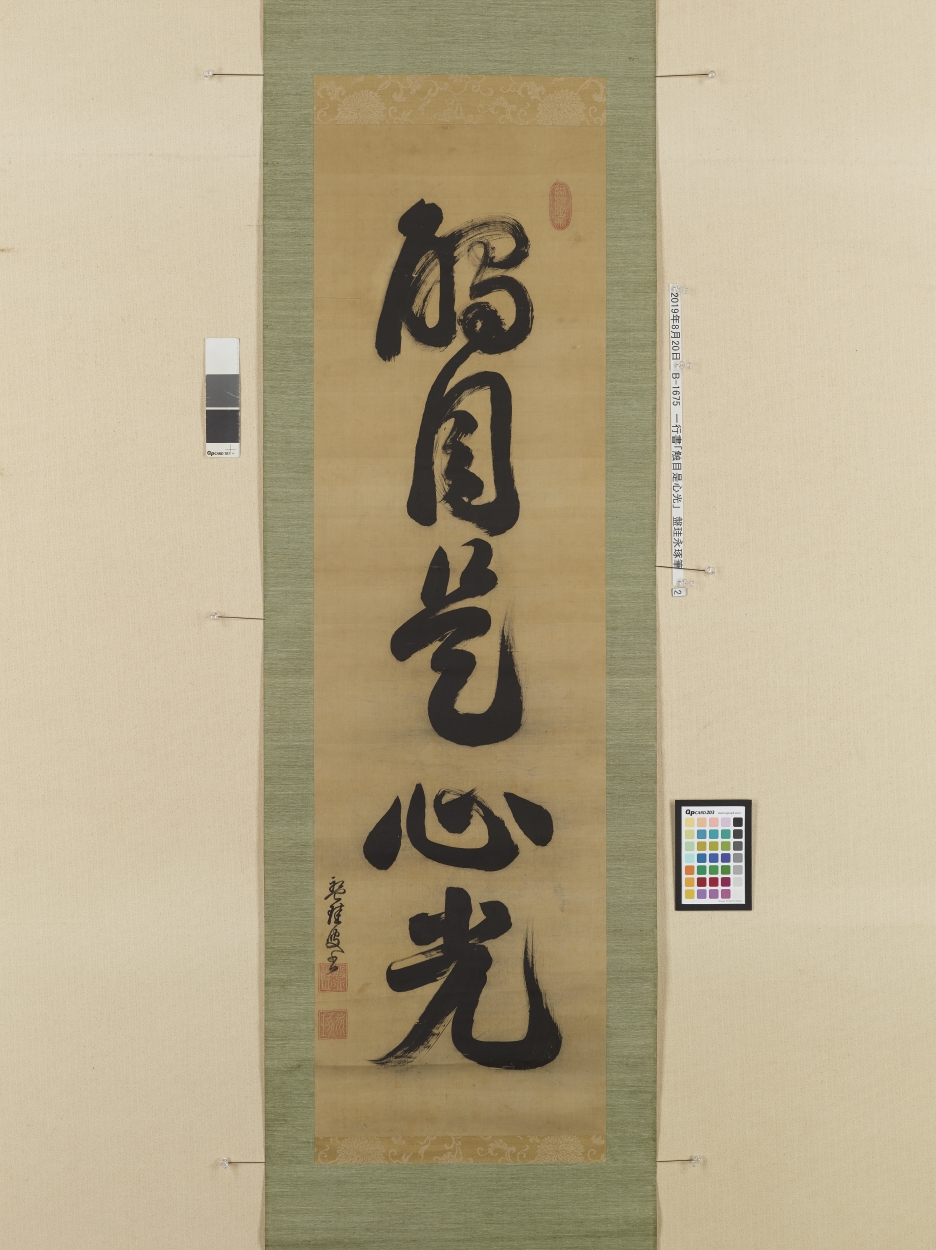 觸目是心光
盤珪叟書
2019年8月20日 B-1675 一行書「触目是心光」 盤珪永琢筆 2
QpCARD 101
QpCARD 201